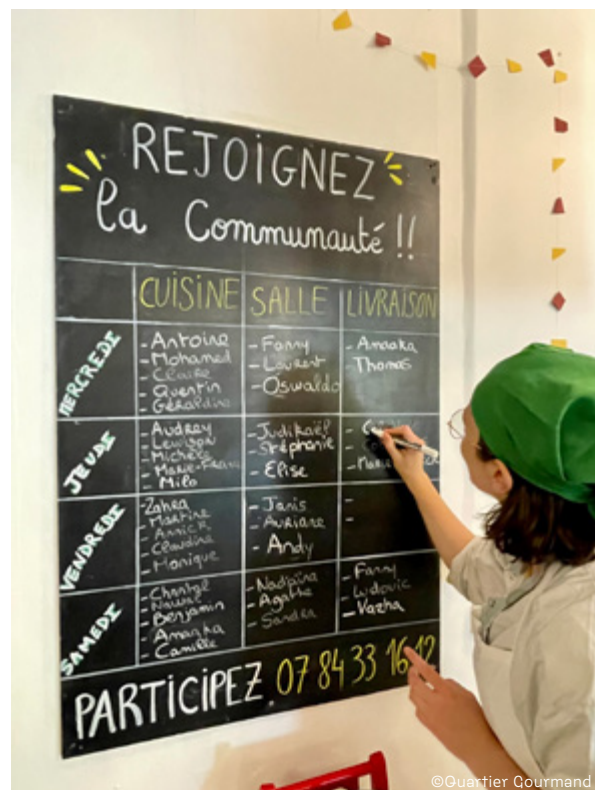 REJOIGNEZ
la Communauté !!
CUISINE SALLE LIVRAISON
MERCREDI
- Antoine
- Mohamed
- Claire
- Quentin
- Géraldine
- Fanny
- Laurent
- Oswaldo
- Amaaka
- Thomas
JEUDI
- Audrey
- Lewison
- Michèle
- Marie-Franc
- Milo
- Judikaël
- Stéphanie
- Elise
-
-
- Marie
VENDREDI
- Zahra
- Martine
- Annick
- Claudine
- Monique
- Janis
- Auriane
- Andy
-
-
SAMEDI
- Chantal
- Nawal
- Benjamin
- Amaaka
- Camille
- Nadjima
- Agathe
- Sandra
- Fanny
- Ludovic
- Vazha
PARTICIPEZ 07 84 33 16 12
©Quartier Gourmand